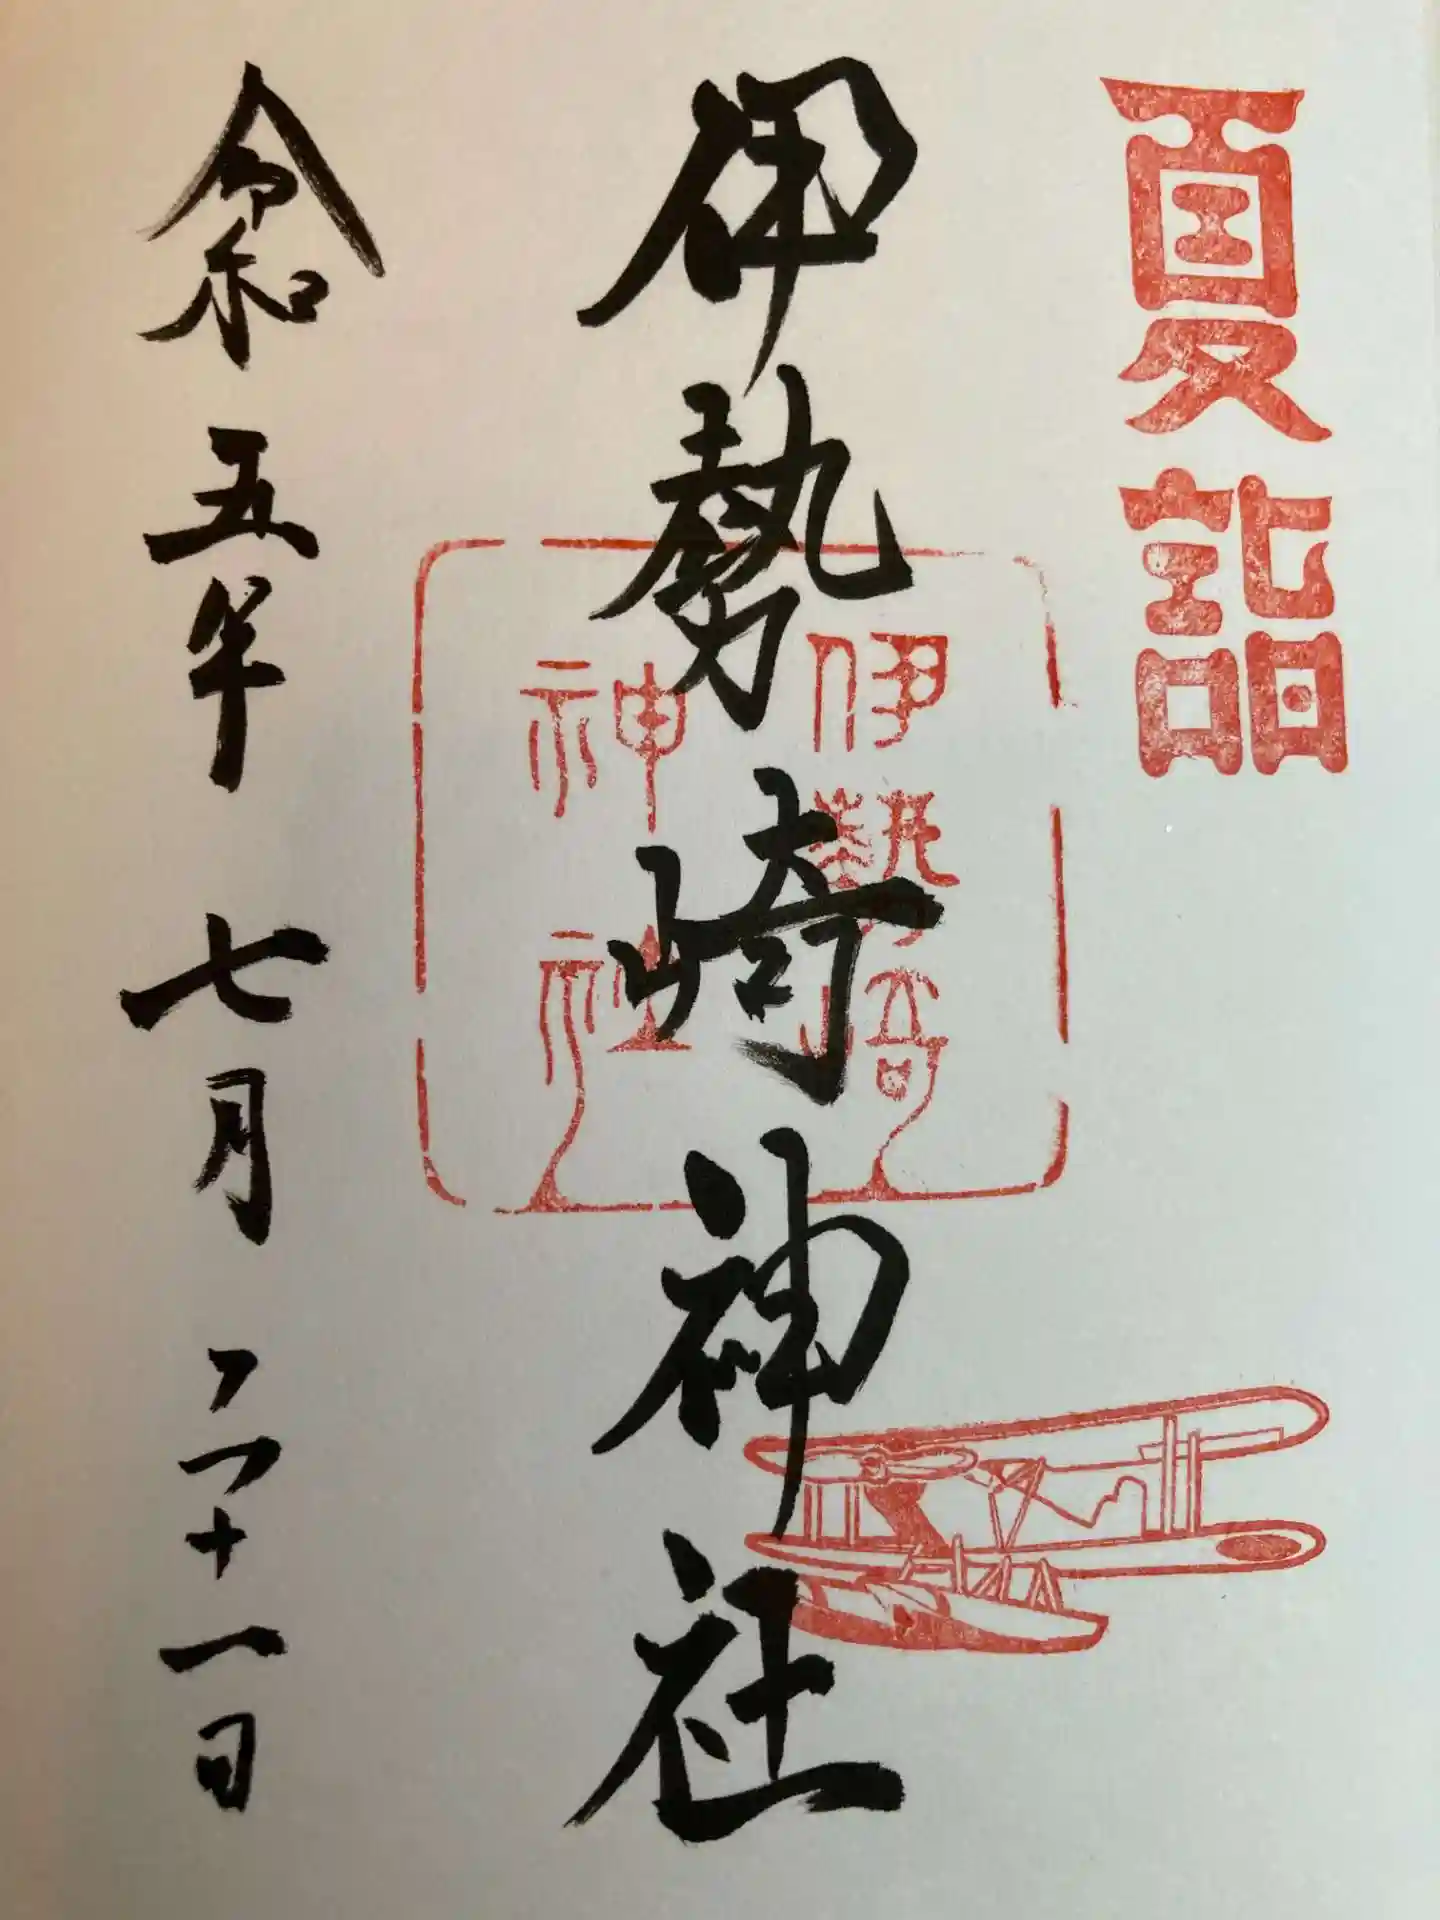 夏詣
伊勢崎神社
伊勢崎
神社
令和五年七月二十一日